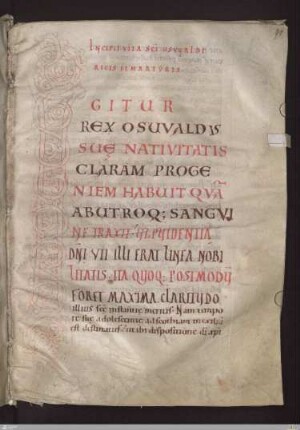 INCIPIT VITA SCI OSVVALDI
REGIS
GITUR
REX OSUVALDUS
SUĘ NATIVITATIS
CLARAM PROGE
NIEM HABUIT QUĀ
AB UTROQ; SANGVI
NE TRAXIT
DN̄I VII ILLI ERAT LINEA NOBI
LITATIS ITA QUOQ; POSTMODŪ
FORET MAXIMA CLARITUDO
illius instantie meritis. Nam tempo
re suę adolescentie ad
est destinatus, ut dispositione